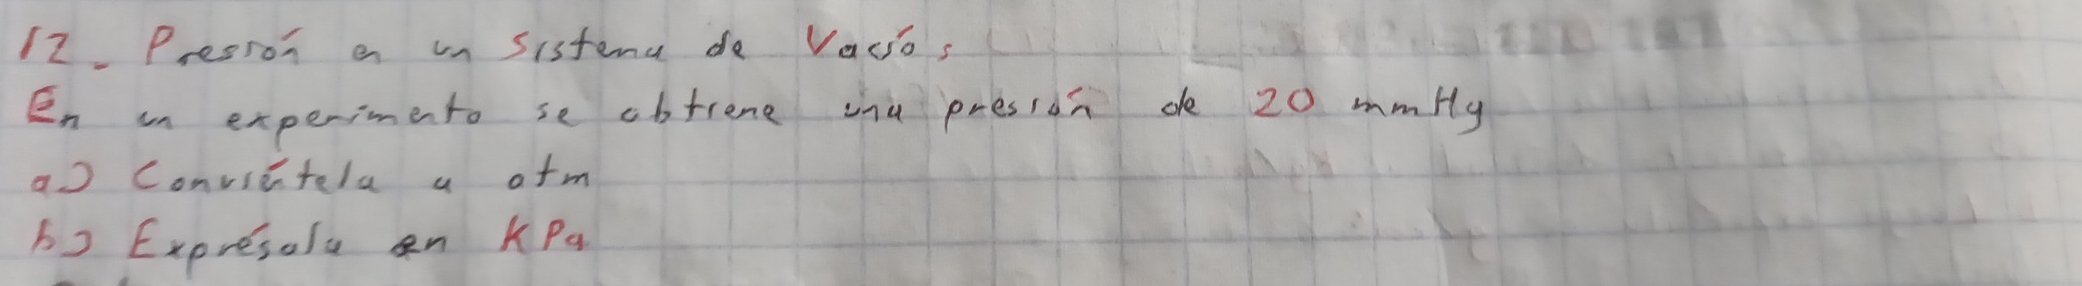 12. Presión en un sistema de Vacío:
En un experimento se obtiene una presión de 20 mmHg
a) Conviértela a atm
b) Exprésala en KPa